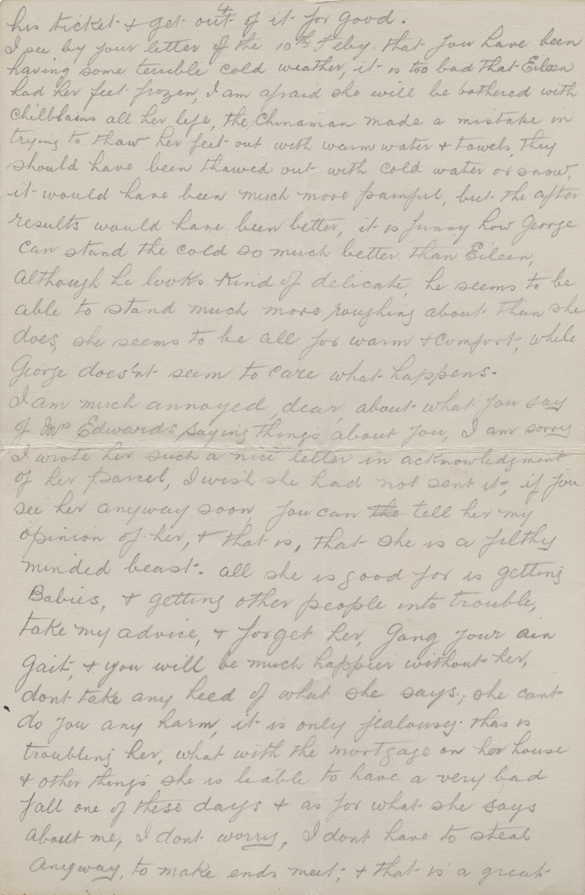 4
his ticket & get out of it for good.
I see by your letter of the 10th Feby. that you have been
having some terrible cold weather, it is too bad that Eileen
had her feet frozen, I am afraid she will be bothered with
chilblains all her life, the Chinaman made a mistake in
trying to thaw her feet out with warm water & towels, they
should have been thawed out with cold water or snow,
it would have been much more painful, but the after
results would have been better, it is funny how George
can stand the cold so much better than Eileen,
although he looks kind of delicate, he seems to be
able to stand much more roughing about than she
does, she seems to be all for warm & comfort, while
George does'nt seem to care what happens.
I am much annoyed, dear, about what you say
of Mrs Edwards, saying things about you, I am sorry
I wrote her such a nice letter in acknowledgment
of her parcel, I wish she had not sent it, if you
see her anyway soon, you can the tell her my
opinion of her, & that is, that she is a filthy
minded beast. all she is good for is getting
Babies, & getting other people into trouble,
take my advice, & forget her, Gang your ain
Gait, & you will be much happier without her,
dont take any heed of what she says, she cant
do you any harm, it is only jealousy that is
troubling her, what with the mortgage on her house
& other things she is liable to have a very bad
fall one of these days & as for what she says
about me, I dont worry, I dont have to steal
anyway, to make ends meet, & that is a great